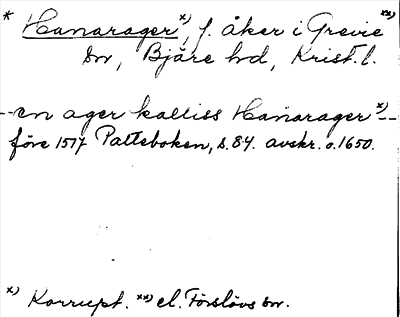 * Hanarager *), f. åker i Grevie **)
sn, Bjäre hd, Krist. l.
-- en ager kalliss Hanarager *) --
före 1517 Palteboken, s. 84. avskr. o. 1650.
*) Korrupt. **) el. Förslövs sn.